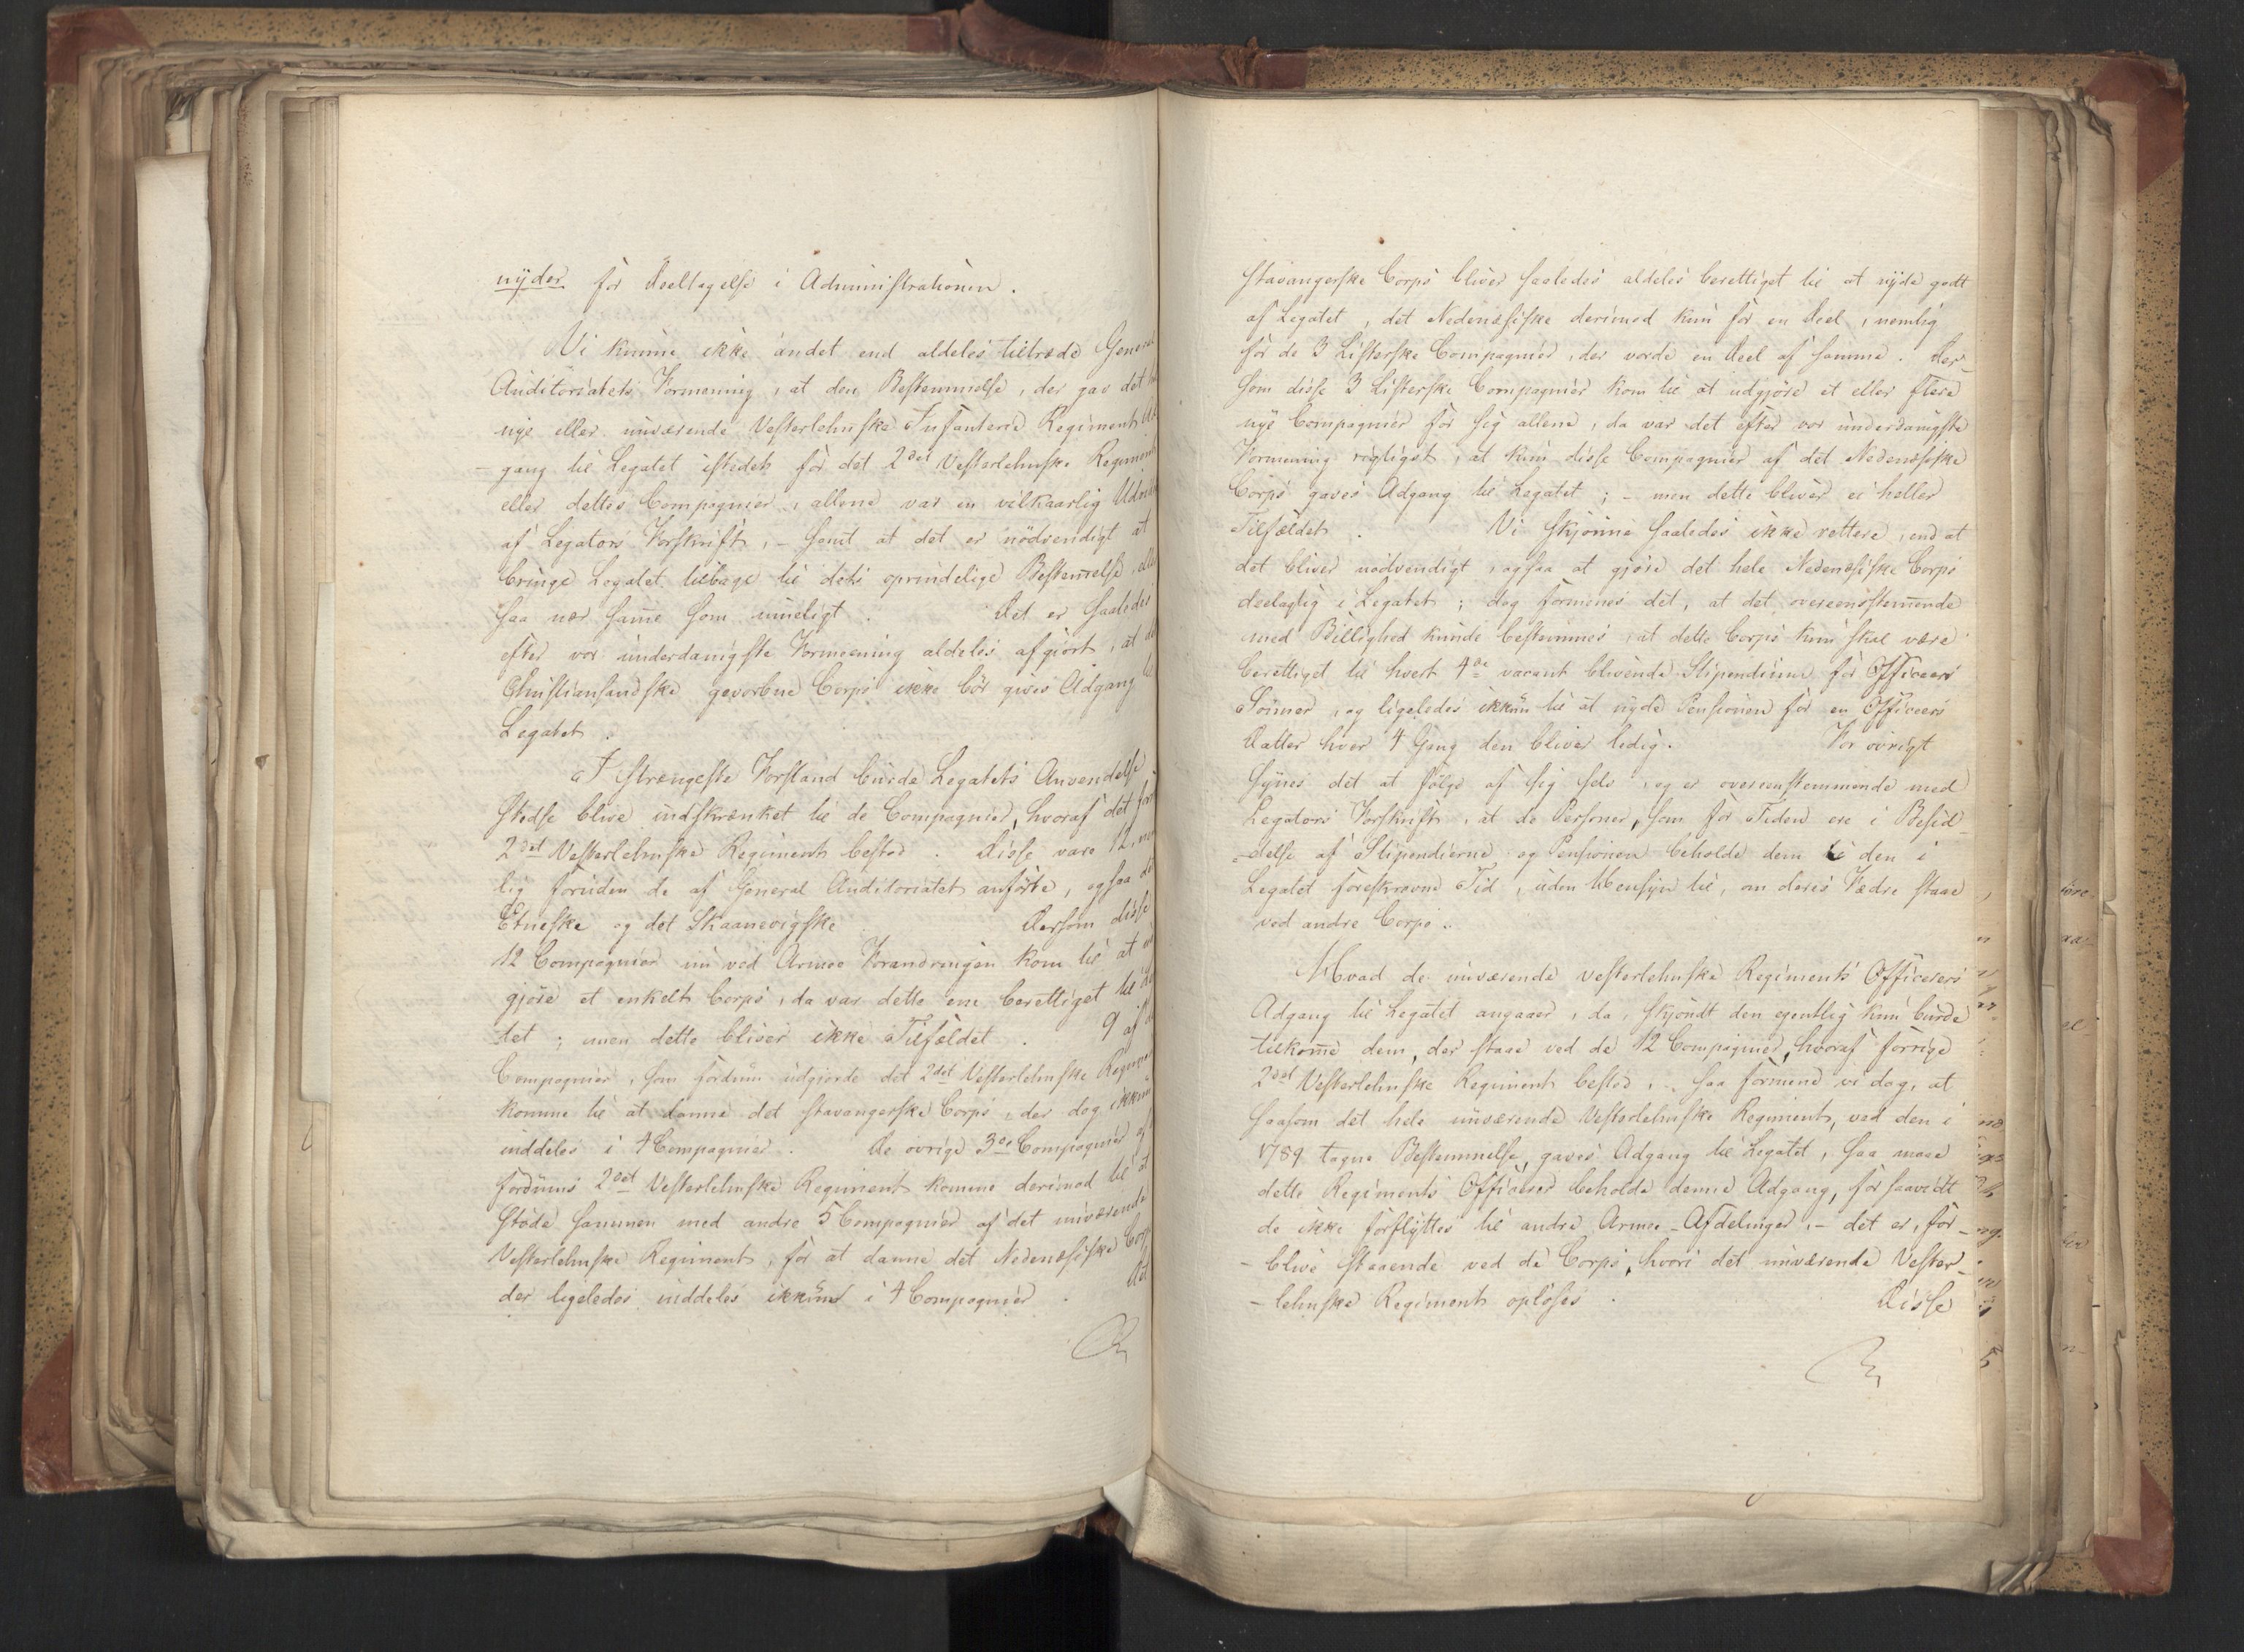 nyder for Deeltagelse i Administrationen.
Vi kunne ikke andet end aldeles tiltræde General
Auditoriatets Formening, at den Bestemmelse, der gav det
nye eller nuværende Vesterlehnske Infanterie Regiment Ad
- gang til Legatet istedet for det 2det Vesterlehnske Regiment
eller dettes Compagnier, allene var en vilkaarlig
af Legators Forskrift, - samt at det er nödvendigt at
bringe Legatet tilbage til dets oprindelige Bestem̄else, eller
saa nær sam̄e som mueligt. Det er saaledes
efter vor underdanigste Formeening aldeles afgiört, at det
Christiansandske gevorbne Corps ikke bör gives Adgang til
Legatet.
I strængeste Forstand burde Legatets Anvendelse
stedse blive indskrænket til de Compagnier, hvoraf det
2det Vesterlehnske Regiment bestod. Disse vare 12,
lig foruden de af General Auditoriatet anförte, ogsaa det
Etneske og det Skaanevigske. Dersom disse
12 Compagnier nu ved Armee Forandringen kom til at
gjöre et enkelt Corps, da var dette ene berettiget til
tet; men dette bliver ikke Tilfældet. 9 af de
Compagnier, som fordum udgjorde det 2det Vesterlehnske Regiment
komme til at danne det stavangerske Corps, der dog ikkun
inddeles i 4 Compagnier. De övrige 3de Compagnier af
fordums 2det Vesterlehnske Regiment komme derimod til at
stöde sammen med andre 5 Compagnier af det nuværende
Vesterlehnske Regiment, for at danne det Nedenæsiske Corps
der ligeledes inddeles ikkun i 4 Compagnier. Det
stavangerske Corps bliver saaledes aldeles berettiget til at nyde godt
af Legatet, det Nedenæsiske derimod kun for en Deel, nemlig
for de 3 Listerske Compagnier, der vorde en Deel af samme. Der-
som disse 3 Listerske Compagnier kom til at udgjöre et eller flere
nye Compagnier for sig allene, da var det efter vor underdanigste
Formening rigtigst, at kun disse Compagnier af det Nedenæsiske
Corps gaves Adgang til Legatet; - men dette bliver ei heller
Tilfældet. Vi skjönne saaledes ikke rettere, end at
det bliver nödvendigt, ogsaa at gjöre det hele Nedenæsiske Corps
deelagtig i Legatet; dog formenes det, at det overeensstem̄ende
med Billighed kunde bestemmes, at dette Corps kun skal være
berettiget til hvert 4de vacant blivende Stipendium for Officeers
Sönner, og ligeledes ikkun til at nyde Pensionen for en Officeers
Datter hver 4 Gang den bliver ledig. For övrigt
synes det at fölge af sig selv, og er overeenstemmende med
Legators Forskrift, at de Personer, som for Tiden ere i Besid-
-delse af Stipendierne og Pensionen beholde dem til den i
Legatet foreskrevne Tid, uden Hensyn til, om deres Fædre staae
ved andre Corps.
Hvad de nuværende vesterlehnske Regiments Officerers
Adgang til Legatet angaaer, da, skjöndt den egentlig kun burde
tilkom̄e dem, der staae ved de 12 Compagnier, hvoraf forrige
2det Vesterlehnske Regiment bestod, - saa formene vi dog, at
saasom det hele nuværende Vesterlehnske Regiment, ved den i
1789 tagne Bestemmelse, gaves Adgang til Legatet, saa maae
dette Regiments Officerer beholde denne Adgang, for saavidt
de ikke forflyttes til andre Armee-Afdelinger, - det er, for-
- blive staaende ved de Corps, hvori det nuværende Vester-
- lehnske Regiment oplöses. Disse